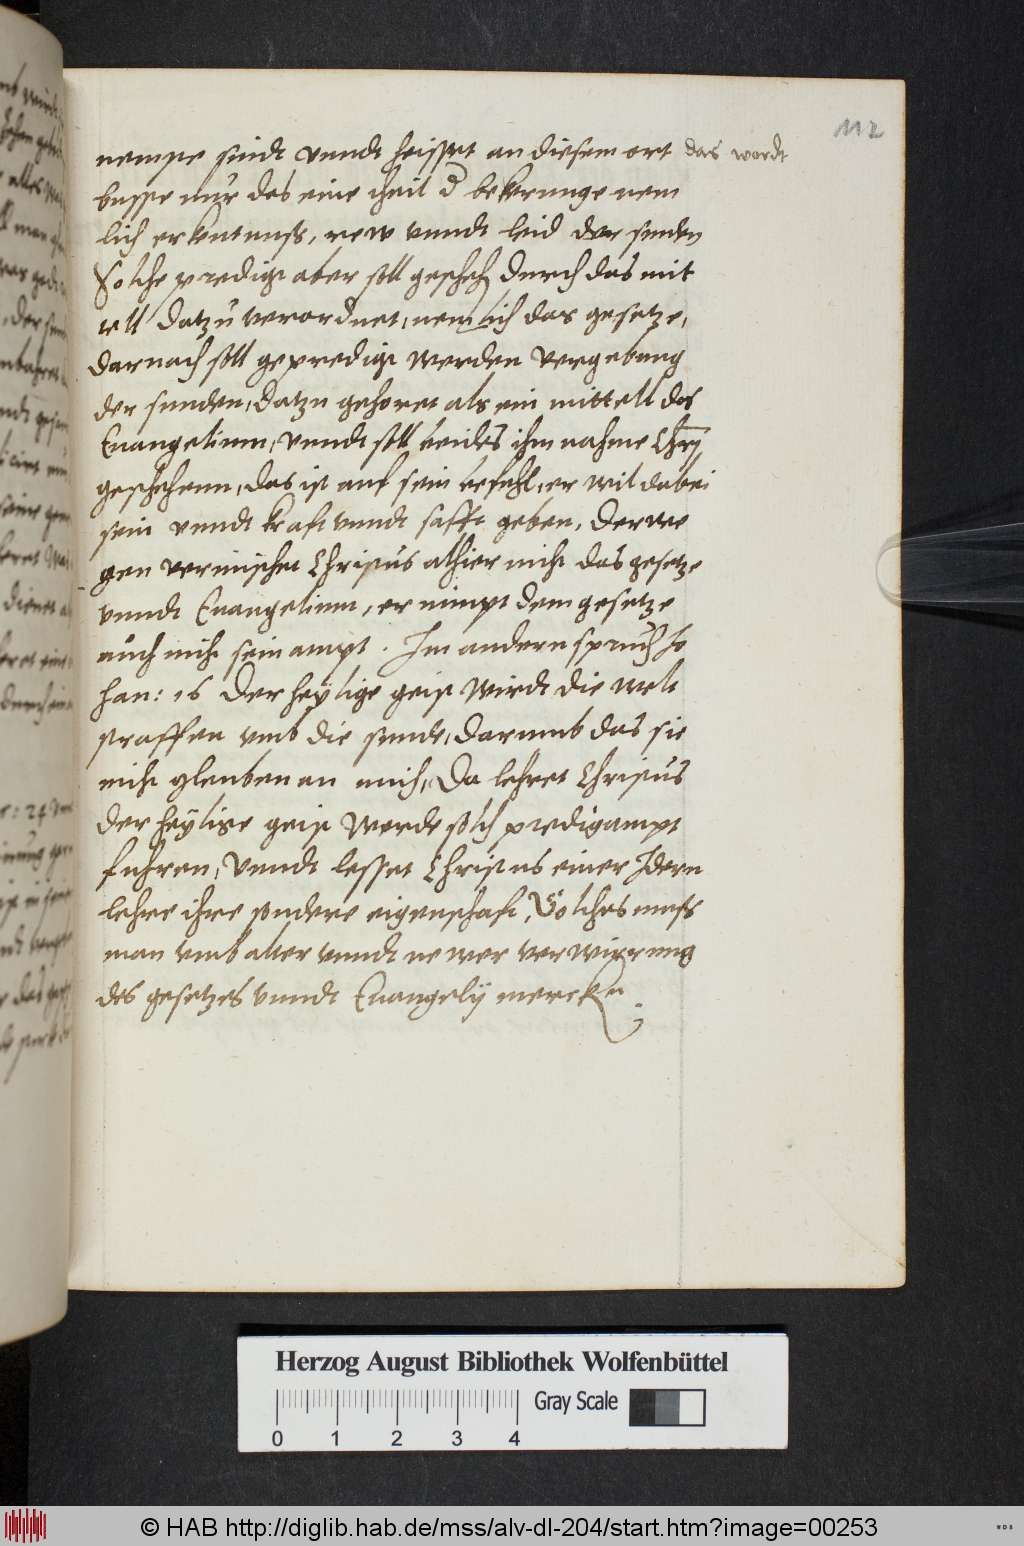 112
nempe sindt vnndt heisset an diesem ort das wordt
busse nur das eine theil d bekerunge nem
lich erkentnuss, rew vnndt leid der sunden
Solche predigt aber soll gescheh durch das mit
tell datzu verordnet, nemlich das gesetze,
darnach soll gepredigt werden vergebung
der sunden, datzu gehoret als ein mittell das
Euangelium, vnndt soll beides ihm nahme Chri
geschehenn, das ist auf sein befehl, er wil dabei
sein vnndt krafft vnndt safft geben, derwe
gen vermischet Christus alhier nicht das gesetze
vnndt Euangelium, er nimpt dem gesetze
auch nicht sein ampt. Im andern spruch Jo
han: 16 Der heÿlige geist wirdt die welt
straffen vmb die sunde, darumb das sie
nicht glauben an mich, Da lehret Christus
der heÿlige geist werde solch predigampt
fuhren, vnndt lesset Christus einer Idern
lehre ihre sondere eigenschafft, Solches muss
man vmb alter vnndt newer verwirrung
des gesetzes vnndt Euangelÿ mercken.
Herzog August Bibliothek Wolfenbüttel
Gray Scale
0 1 2 3 4
© HAB http://diglib.hab.de/mss/alv-dl-204/start.htm?image=00253